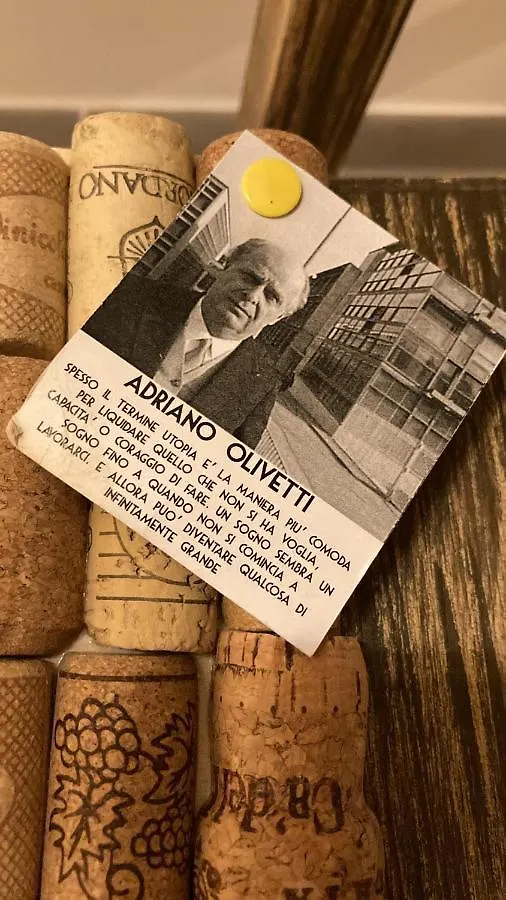 ORDANO
inico
ADRIANO OLIVETTI
SPESSO IL TERMINE UTOPIA E' LA MANIERA PIU' COMODA
PER LIQUIDARE QUELLO CHE NON SI HA VOGLIA,
CAPACITA' O CORAGGIO DI FARE. UN SOGNO SEMBRA UN
SOGNO FINO A QUANDO NON SI COMINCIA A
LAVORARCI. E ALLORA PUO' DIVENTARE QUALCOSA DI
INFINITAMENTE GRANDE
Ca'de